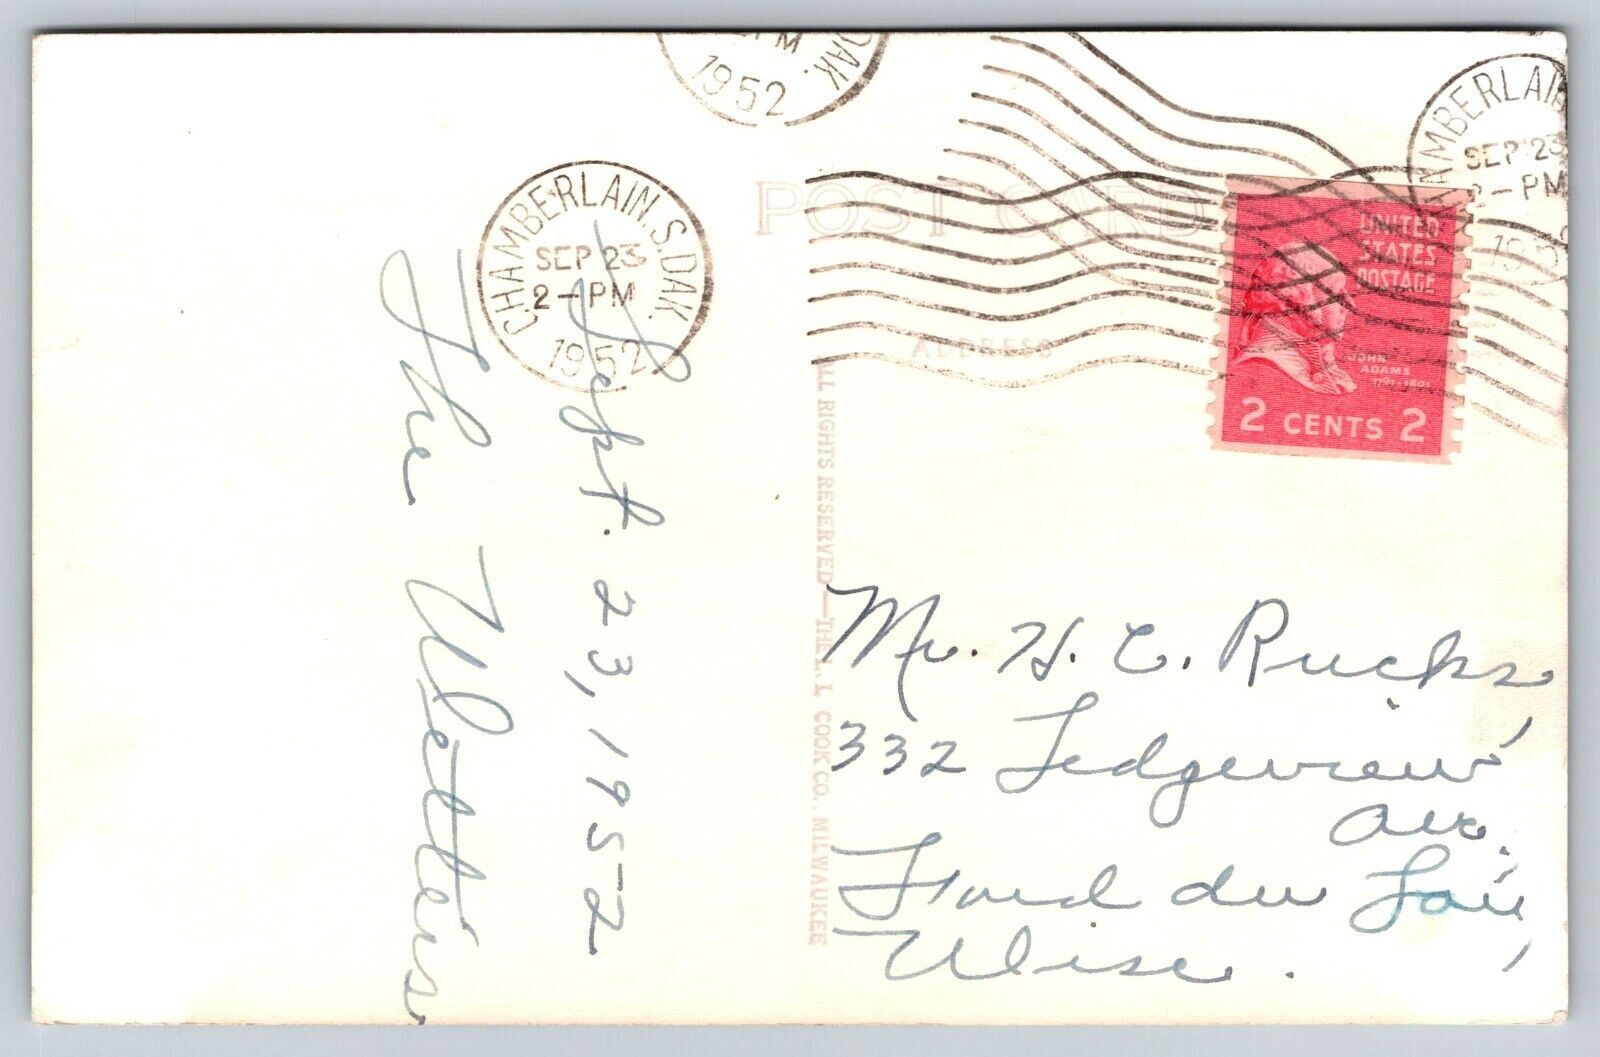 2-PM
1952
DAK.
CHAMBERLAIN, S.DAK.
SEP 23
2-PM
1952
AMBERLAIN
SEP 23
2-PM
1952
POST CARD
ADDRESS
UNITED
STATES
POSTAGE
JOHN
ADAMS
1797-1801
2 CENTS 2
ALL RIGHTS RESERVED—THE L. L. COOK CO., MILWAUKEE
Sept. 23, 1952
The Wetters
Mr. H. C. Rucks,
332 Ledgeview
Ave.,
Fond du Lac,
Wisc.